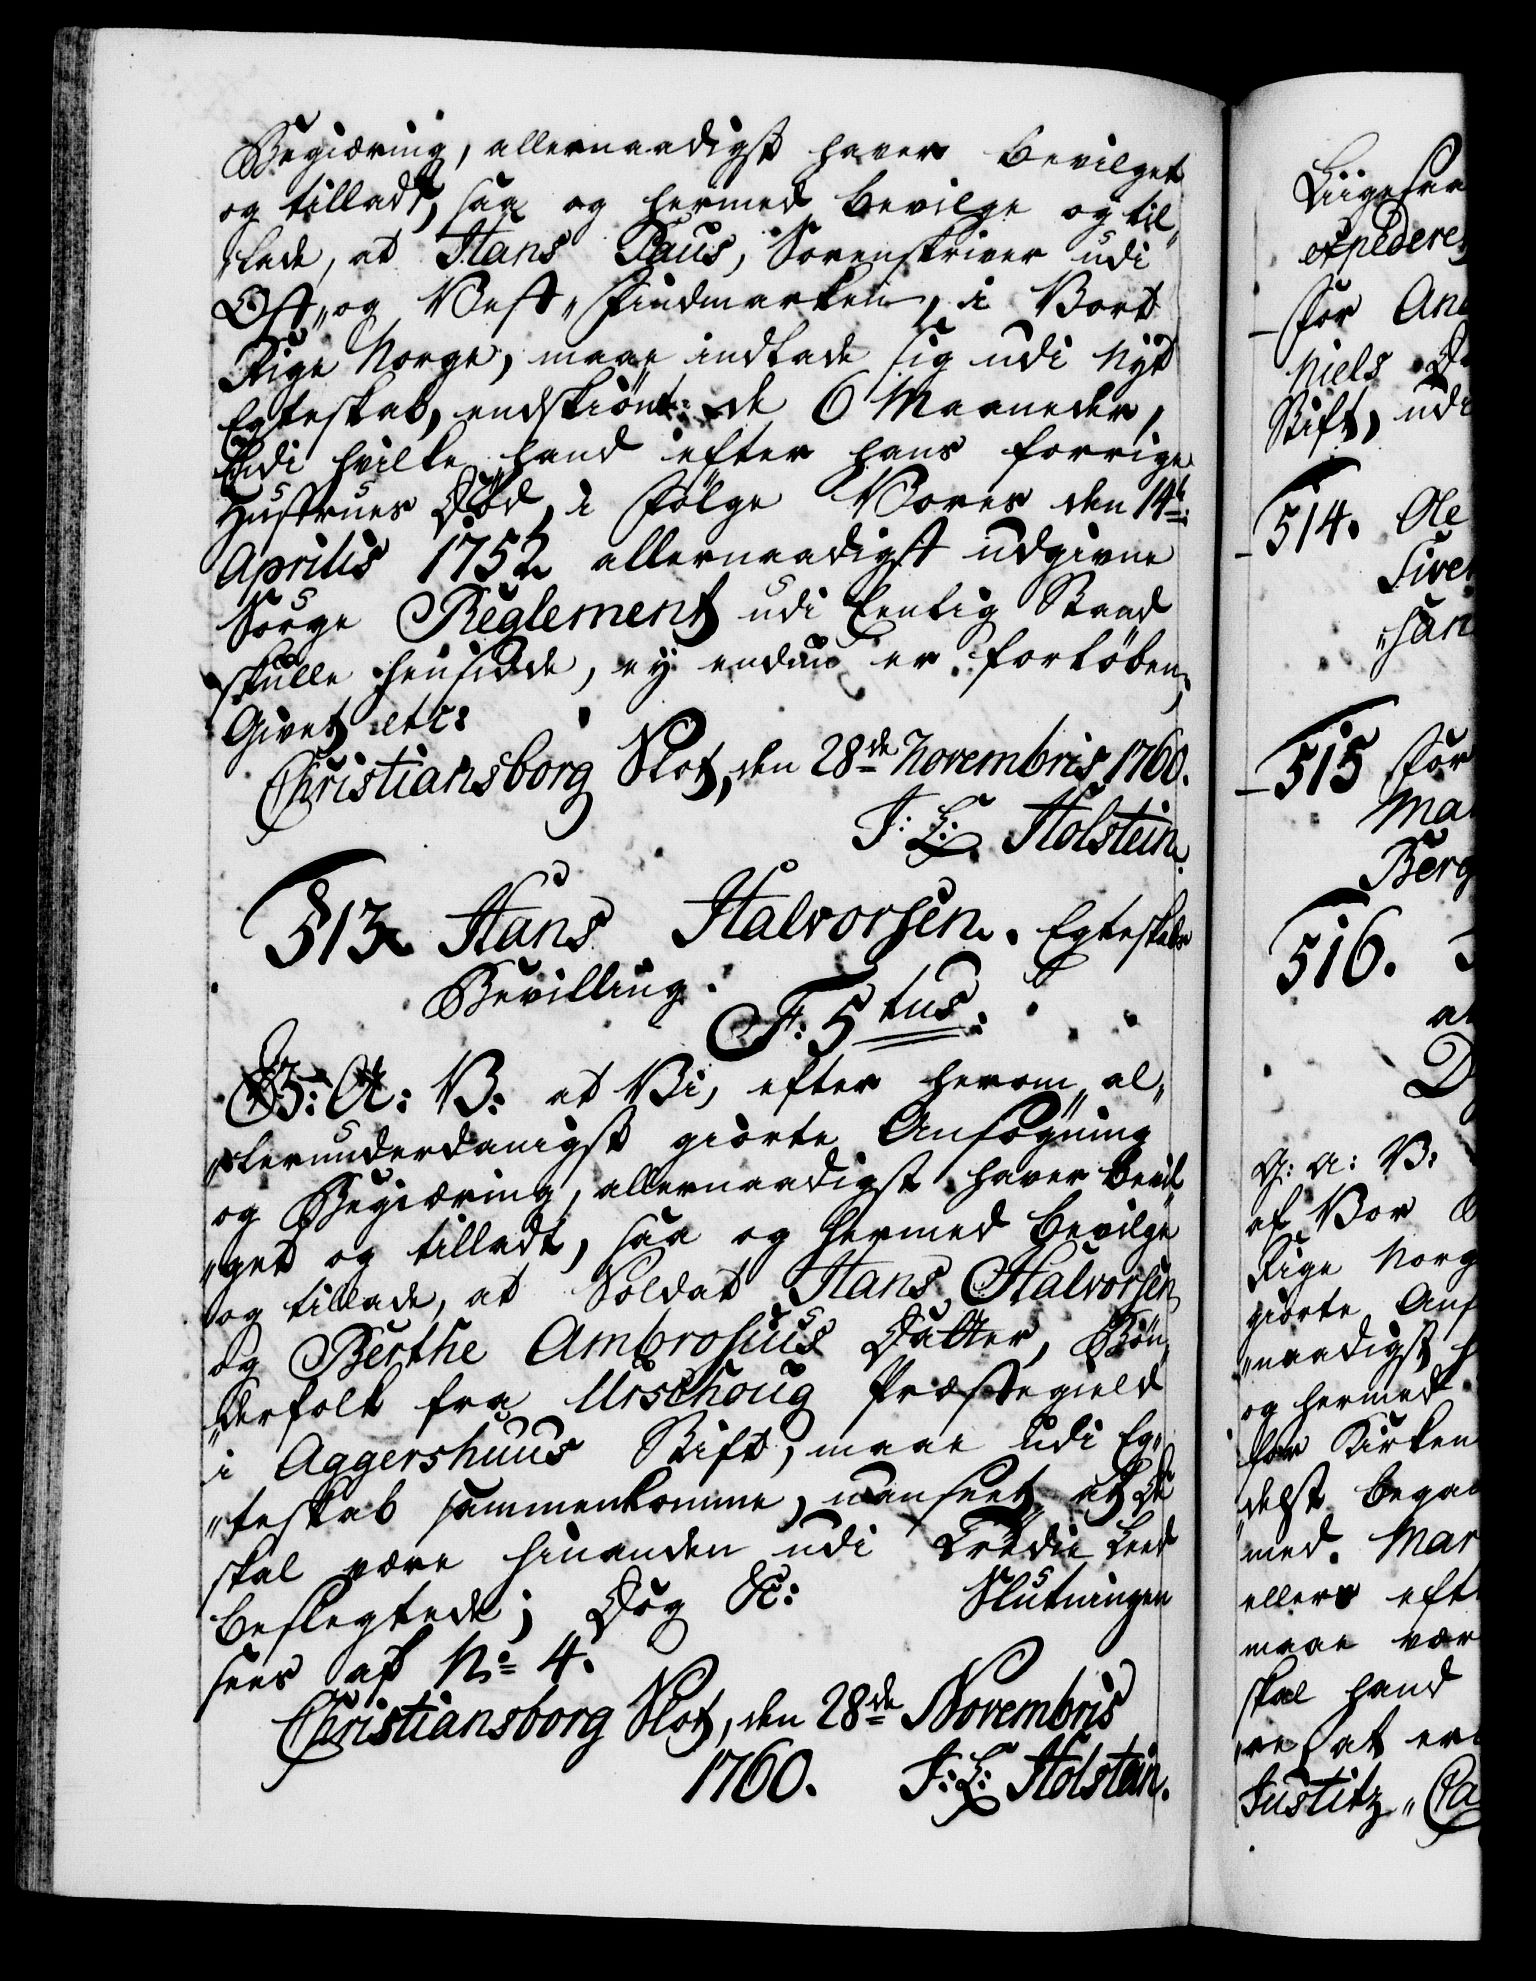 Begiæring, allernaadigst haver bevilget
og tilladt, saa og hermed bevilge og til„
„lade, at Hans Paus, Sorenskriver udi
Øst„ og Vest„Findmarken, i Vort
Rige Norge, maae indlade sig udi nyt
Egteskab, endskiønt de 6 Maaneder,
udi hvilke hand efter hans forrige
Hustrues Død, i følge Vores den 14de
Aprilis 1752 allernaadigst udgivne
Sorge Reglement udi Eenlig Stand
skulle hensidde, ey endnu er forløben;
Givet etc:
Christiansborg Slot, den 28de Novembris 1760.
J: L: Holstein.
513 Hans Halvorsen. Egteskabs
Bevilling.
F: 5tus.
G: A: V: at Vi, efter herom al„
„lerunderdanigst giorte Ansøgning
og Begiæring, allernaadigst haver bevil„
„get og tilladt, saa og hermed bevilge
og tillade, at Soldat Hans Halvorsen
og Berthe Ambrosius Datter, Bøn„
„derfolk fra Urschoug Præstegield
i Aggershuus Stift, maae udi Eg„
„teskab sammenkomme, uanseet, at de
skal være hinanden udi Tredie Leed
beslegtede; Dog &c: Slutningen
sees af No 4.
Christiansborg Slot, den 28de Novembris
1760. J: L: Holstein.
Liigesaa
expederet
for And
Niels
Stift, udi
514. Ole
Siver
„han
515 for
Ma
Berg
516.
at
D
G: A: V:
af Vor
Rige Norg
giorte Ans
„naadigst h
og hermed
for Kirken
delst begaa
med. Mar
ellers eft
maae vær
skal hand
„re, at er
Justitz„ Ca